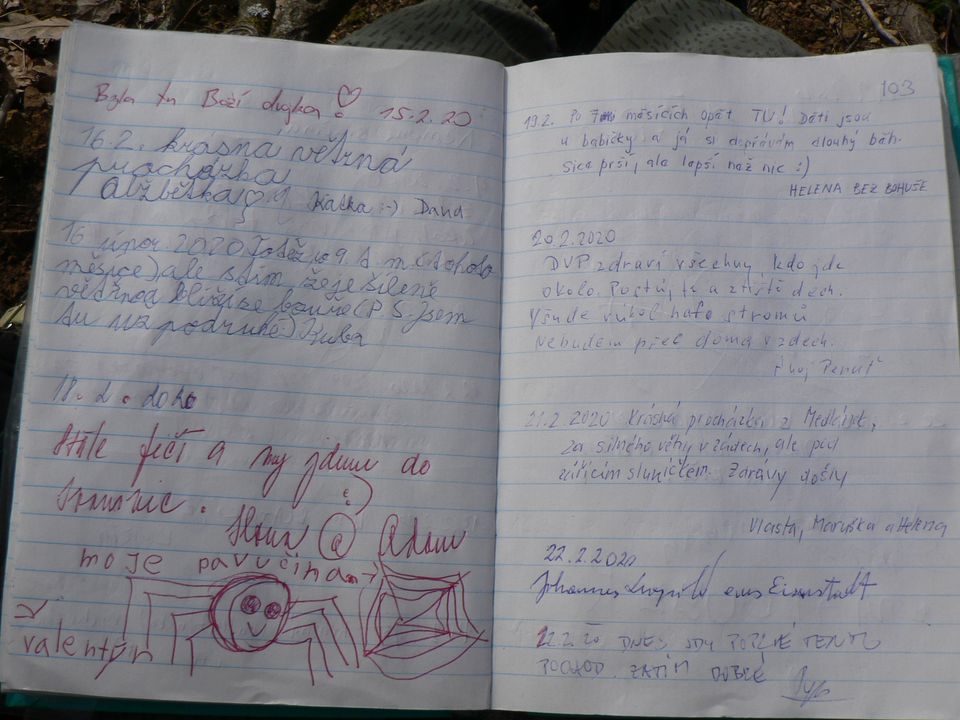 Byla tu Boží dujka! 15.2.20
16.2. krásná větrná
procházka
Alžbětka Katka :-) David
16 únor 2020 Totéž co 9. t. m. (tohoto
měsíce) ale s tím že je šíleně
větrno a blíží se bouře (P.S. jsem
tu už podruhé) Kuba
18. 2. 
Stále fičí a my jdeme do
:)
Hana @ Adam
moje pavučina →
valentýn
103
19.2. Po 7 měsících opět TU! Děti jsou
u babičky a já si dopřávám dlouhý běh-
sice prší, ale lepší než nic :)
HELENA BEZ BOHUŠE
20.2.2020
DVP zdraví všechny, kdo jde
okolo. Postůj, te a ztiší dech.
Všude vůkol hafo stromů
nebudem před doma vzdech.
Tvůj
21.2.2020 Krásná procházka z Medlánek,
za silného větru v zádech, ale pod
zářícím sluníčkem. Zdrávy došly
Vlasta, Maruška a Helena
22.2.2020
Johannes aus Eisenstadt
22.2.20 DNES JDU POPRVÉ TENTO
POCHOD. ZATÍM DOBRÉ